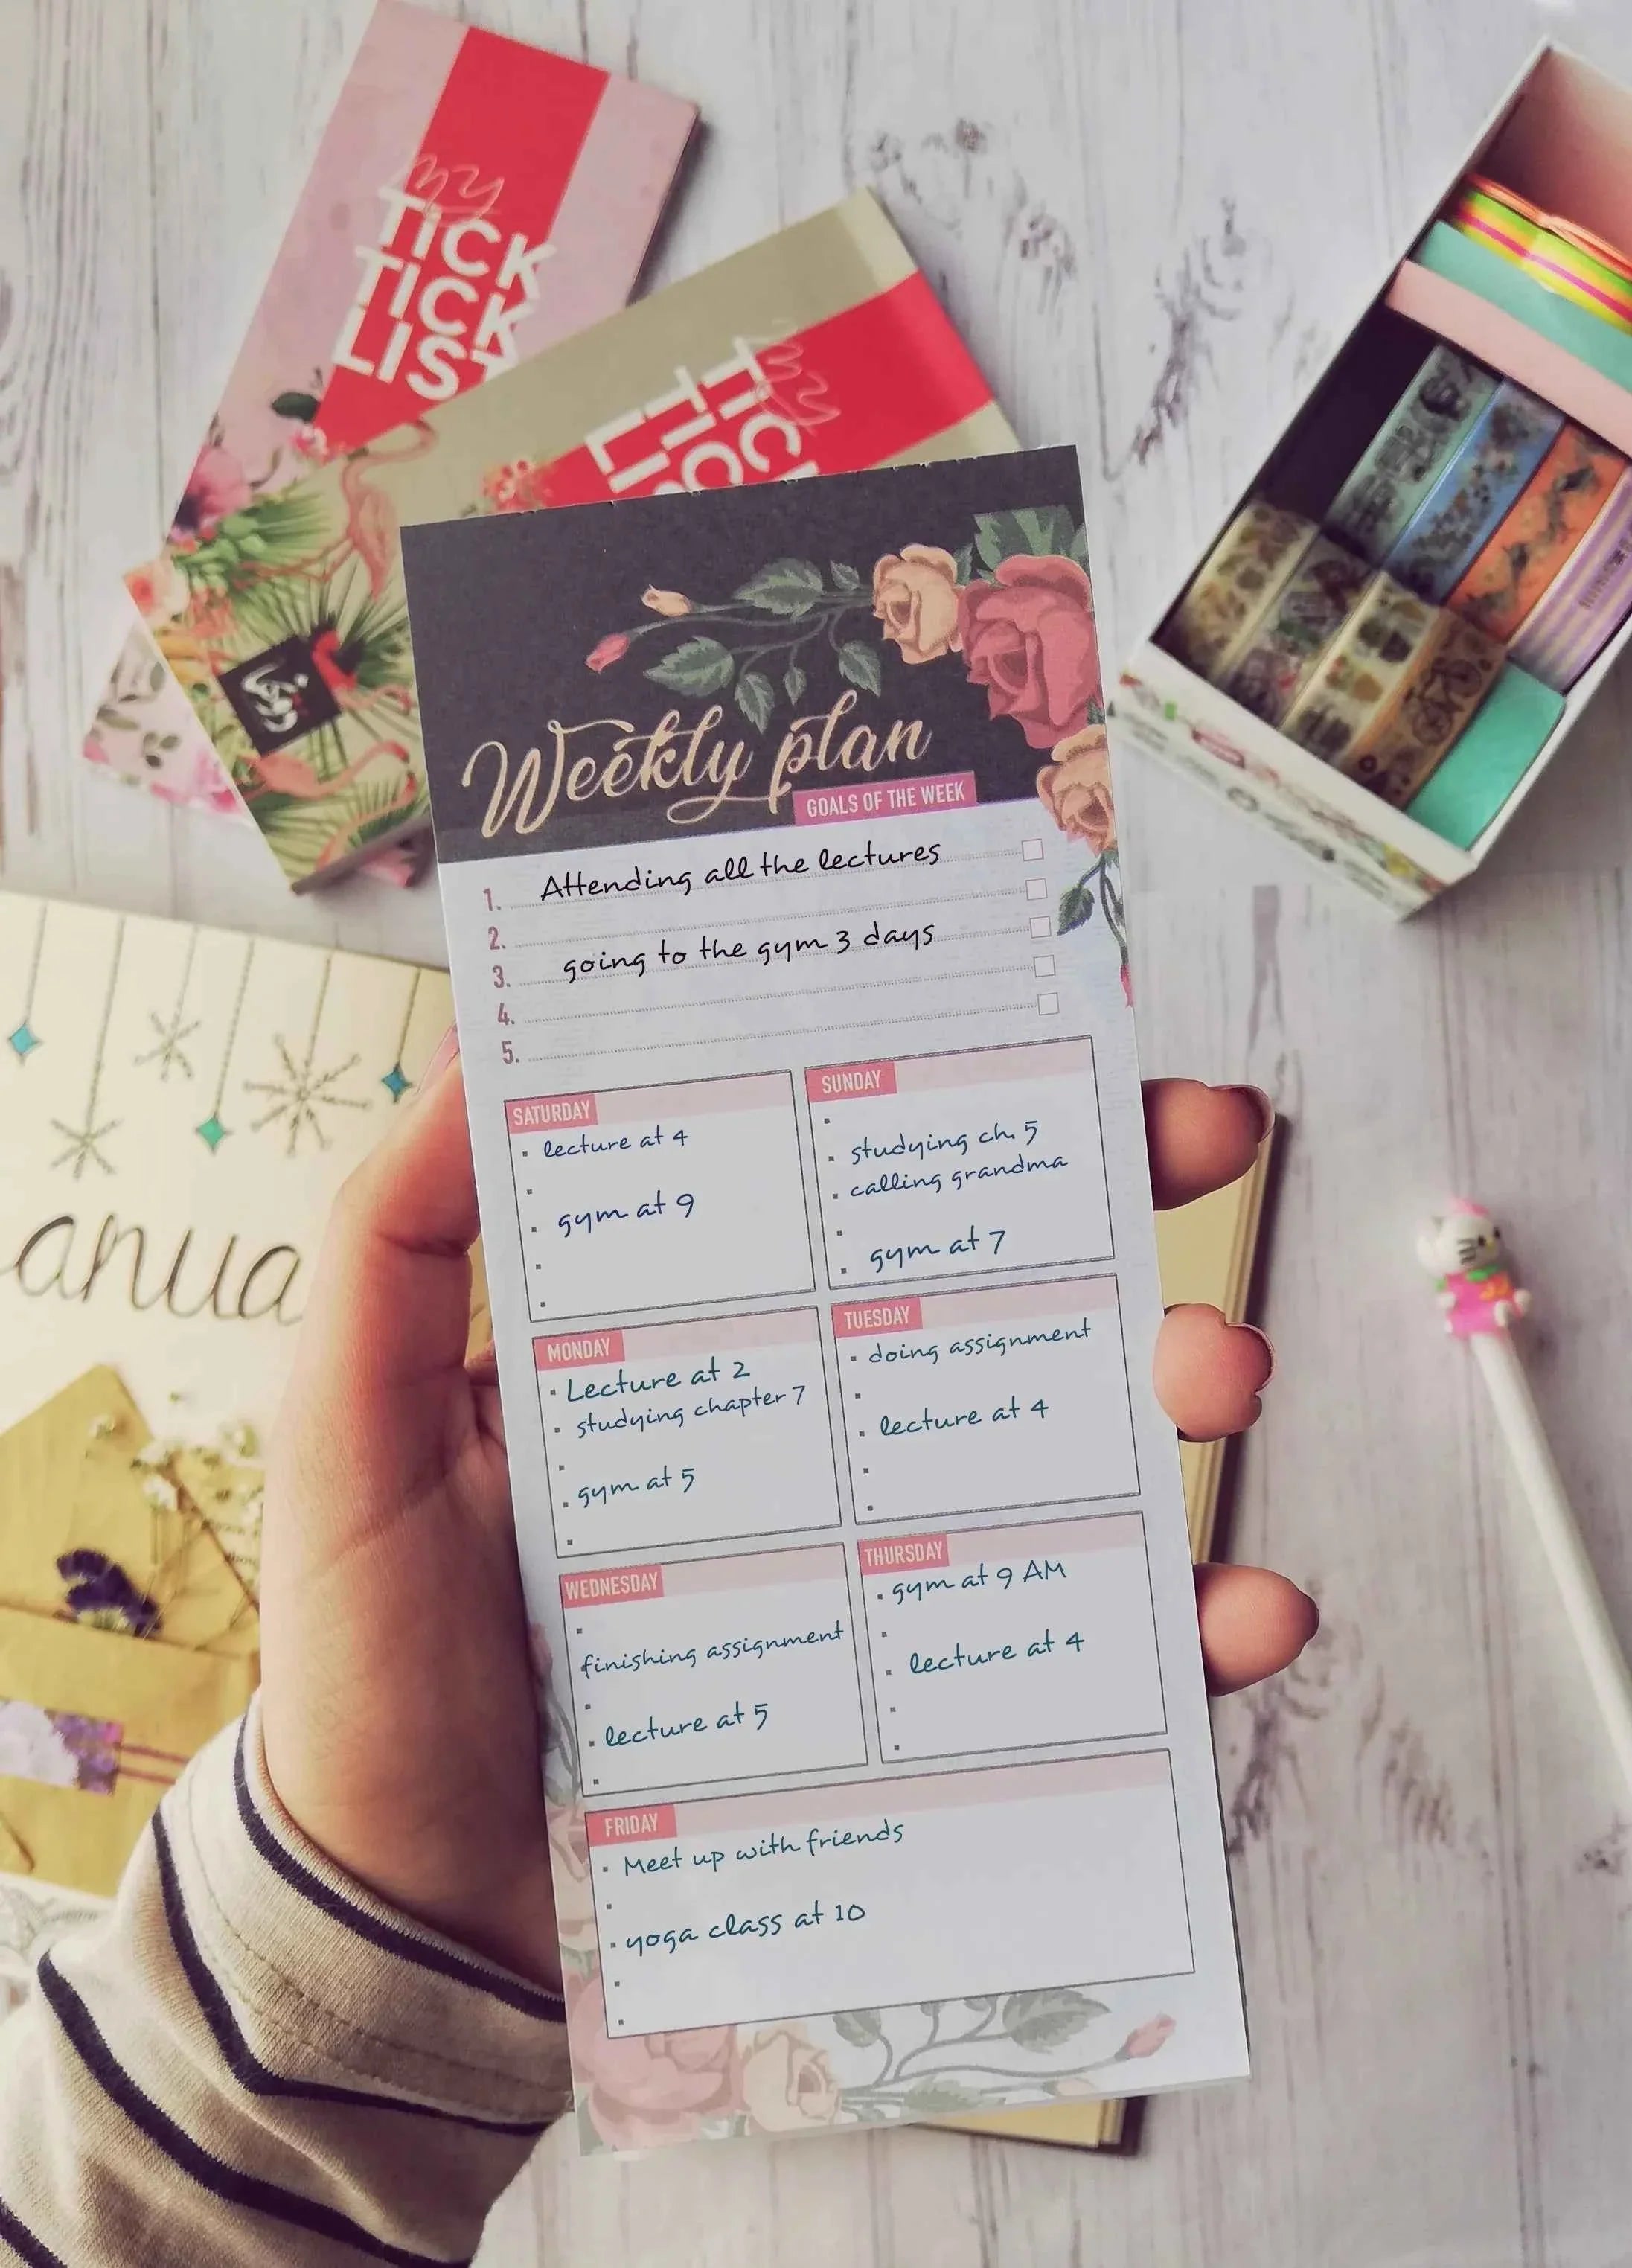 my
TICK
TICK
LIST
my
TICK
Weekly plan
GOALS OF THE WEEK
1. Attending all the lectures
2.
3. going to the gym 3 days
4.
5.
SATURDAY
lecture at 4
gym at 9
SUNDAY
studying ch. 5
calling grandma
gym at 7
MONDAY
Lecture at 2
studying chapter 7
gym at 5
TUESDAY
doing assignment
lecture at 4
WEDNESDAY
finishing assignment
lecture at 5
THURSDAY
gym at 9 AM
lecture at 4
FRIDAY
Meet up with friends
yoga class at 10
anua